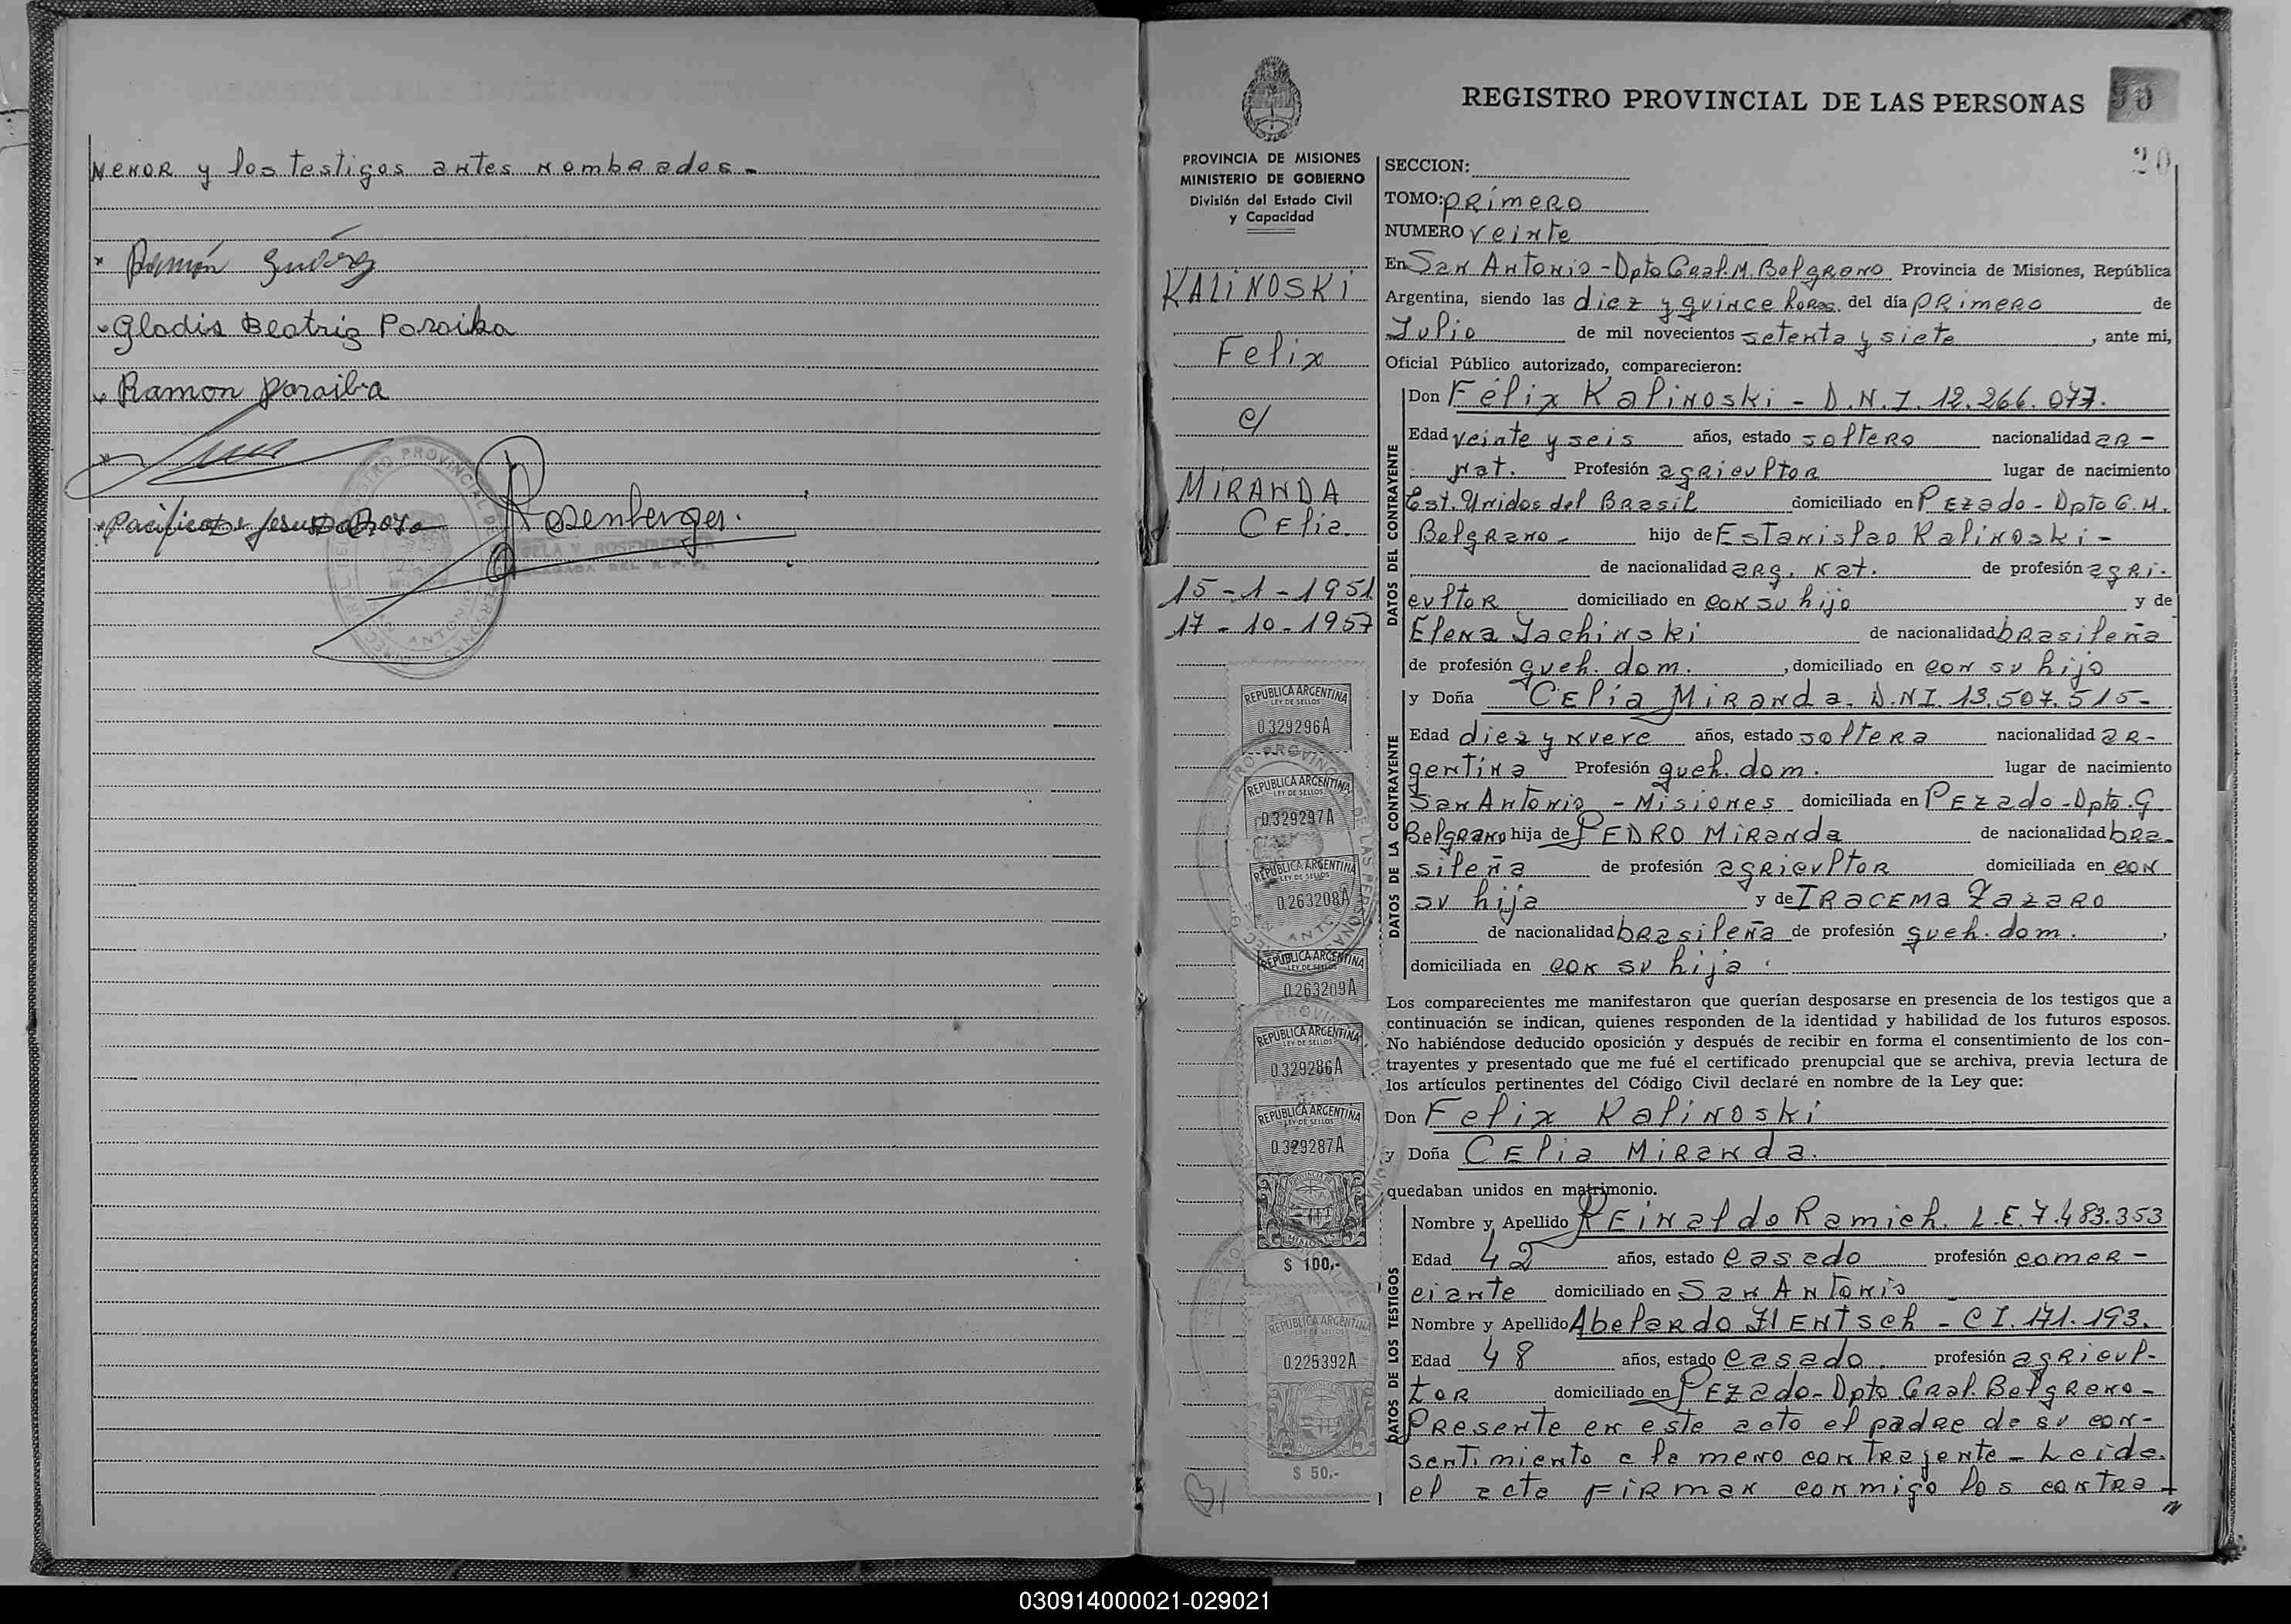 Menor y los testigos antes nombrados.-
Gladis Beatriz Paraiba
Ramon Paraiba
Rosenberger.
ROSENBERGER
REGISTRO PROVINCIAL DE LAS PERSONAS
20
PROVINCIA DE MISIONES
MINISTERIO DE GOBIERNO
División del Estado Civil
y Capacidad
KALINOSKI
Felix
c/
MIRANDA
Celia.
15-1-1951
17-10-1957
REPUBLICA ARGENTINA
LEY DE SELLOS
0.329296A
REPUBLICA ARGENTINA
LEY DE SELLOS
0.329297A
REPUBLICA ARGENTINA
LEY DE SELLOS
0.263208A
REPUBLICA ARGENTINA
LEY DE SELLOS
0.263209A
REPUBLICA ARGENTINA
LEY DE SELLOS
0.329286A
REPUBLICA ARGENTINA
LEY DE SELLOS
0.329287A
MISIONES
$ 100,-
REPUBLICA ARGENTINA
LEY DE SELLOS
0.225392A
$ 50.-
SECCION:
TOMO: primero
NUMERO veinte
En San Antonio - Dpto Gral. M. Belgrano Provincia de Misiones, República
Argentina, siendo las diez y quince horas. del día primero de
Julio de mil novecientos setenta y siete, ante mi,
Oficial Público autorizado, comparecieron:
DATOS DEL CONTRAYENTE
Don Félix Kalinoski - D.N.I. 12.266.077.
Edad veinte y seis años, estado soltero nacionalidad ar-
nat. Profesión agricultor lugar de nacimiento
Est. Unidos del Brasil domiciliado en Pezado - Dpto G. M.
Belgrano - hijo de Estanislao Kalinoski -
de nacionalidad arg. nat. de profesión agri-
cultor domiciliado en con su hijo y de
Elena Jachinski de nacionalidad brasileña
de profesión queh. dom., domiciliado en con su hijo
DATOS DE LA CONTRAYENTE
y Doña Celia Miranda. D.N.I. 13.507.515-
Edad diez y nueve años, estado soltera nacionalidad ar-
gentina Profesión queh. dom. lugar de nacimiento
San Antonio - Misiones domiciliada en Pezado - Dpto. G
Belgrano hija de PEDRO Miranda de nacionalidad bra-
sileña de profesión agricultor domiciliada en con
su hija y de IRACEMA Lazaro
de nacionalidad brasileña de profesión queh. dom.,
domiciliada en con su hija.
Los comparecientes me manifestaron que querían desposarse en presencia de los testigos que a
continuación se indican, quienes responden de la identidad y habilidad de los futuros esposos.
No habiéndose deducido oposición y después de recibir en forma el consentimiento de los con-
trayentes y presentado que me fué el certificado prenupcial que se archiva, previa lectura de
los artículos pertinentes del Código Civil declaré en nombre de la Ley que:
Don Felix Kalinoski
y Doña Celia Miranda.
quedaban unidos en matrimonio.
DATOS DE LOS TESTIGOS
Nombre y Apellido Reinaldo Ramich. L.E. 7.483.353
Edad 42 años, estado casado profesión comer-
ciante domiciliado en San Antonio
Nombre y Apellido Abelardo Hentsch - C I. 171.193.
Edad 48 años, estado casado. profesión agricul-
tor domiciliado en Pezado - Dpto Gral. Belgrano -
Presente en este acto el padre de su con-
sentimiento a la meno contrayente - Leida.
el acta firman conmigo los contra
030914000021-029021